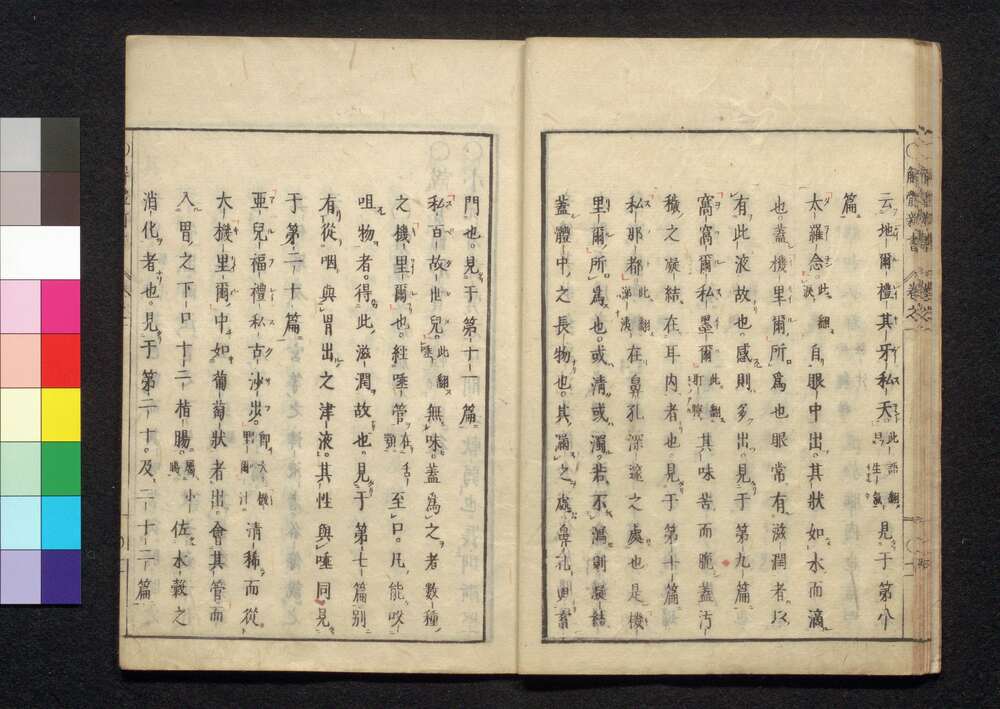 云地爾禮其牙私天此語翻曰生氣見于第八
篇
太羅念此翻淚自眼中出其狀如水而滴
也蓋機里爾所為也眼常有滋潤者以
有此液故也感則多出見于第九篇
窩窩爾私墨爾此翻耵聹其味苦而脆蓋污
穢之凝結在耳内者也見于第十篇
私耶都此翻涕洟在鼻孔深邃之處也是機
里爾所為也或清或濁若不漏則凝結
蓋體中之長物也其漏之處鼻孔與
門也見于第十一篇
私百故世兒此翻唾無味蓋為之者數種
之機里爾也經唾管在舌至口凡能咬
咀物者得此滋潤故也見于第七篇別
有從咽與胃出之津液其性與唾同見
于第二十篇
亞兒福禮私古沙步即大機里爾汁清稀而從
大機里爾中如葡萄狀者出會其管而
入胃之下口十二楷腸屬小腸佐水穀之
消化者也見于第二十及二十二篇
解體新書 卷之一